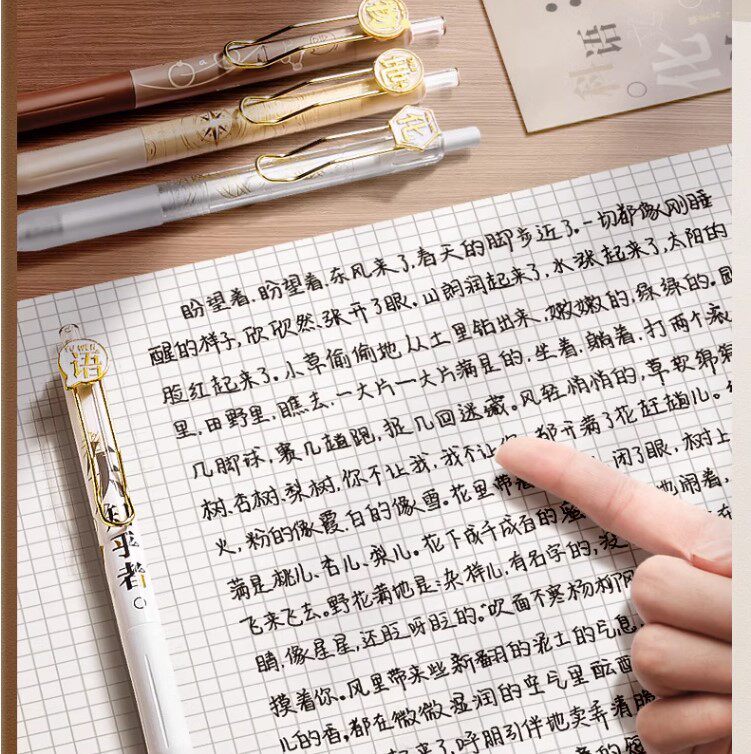 物
地
化
语
科
化
YU WEN
语
乎者
盼望着,盼望着,东风来了,春天的脚步近了。一切都像刚睡
醒的样子,欣欣然张开了眼。山朗润起来了,水涨起来了,太阳的
脸红起来了。小草偷偷地从土里钻出来,嫩嫩的,绿绿的。
里,田野里,瞧去,一大片一大片满是的,坐着,躺着,打两个滚
几脚球,赛几趟跑,捉几回迷藏。风轻悄悄的,草软绵
树、杏树、梨树,你不让我,我不让你,都开满了花赶趟儿。
火,粉的像霞,白的像雪。花里带 闭了眼,树上
满是桃儿、杏儿、梨儿。花下成千成百的蜜 地闹着,
飞来飞去。野花满地是:杂样儿,有名字的,没
睛,像星星,还眨呀眨的。“吹面不寒杨柳风
摸着你。风里带来些新翻的泥土的气息,
儿的香,都在微微湿润的空气里酝酿
起来了,呼朋引伴地卖弄清脆